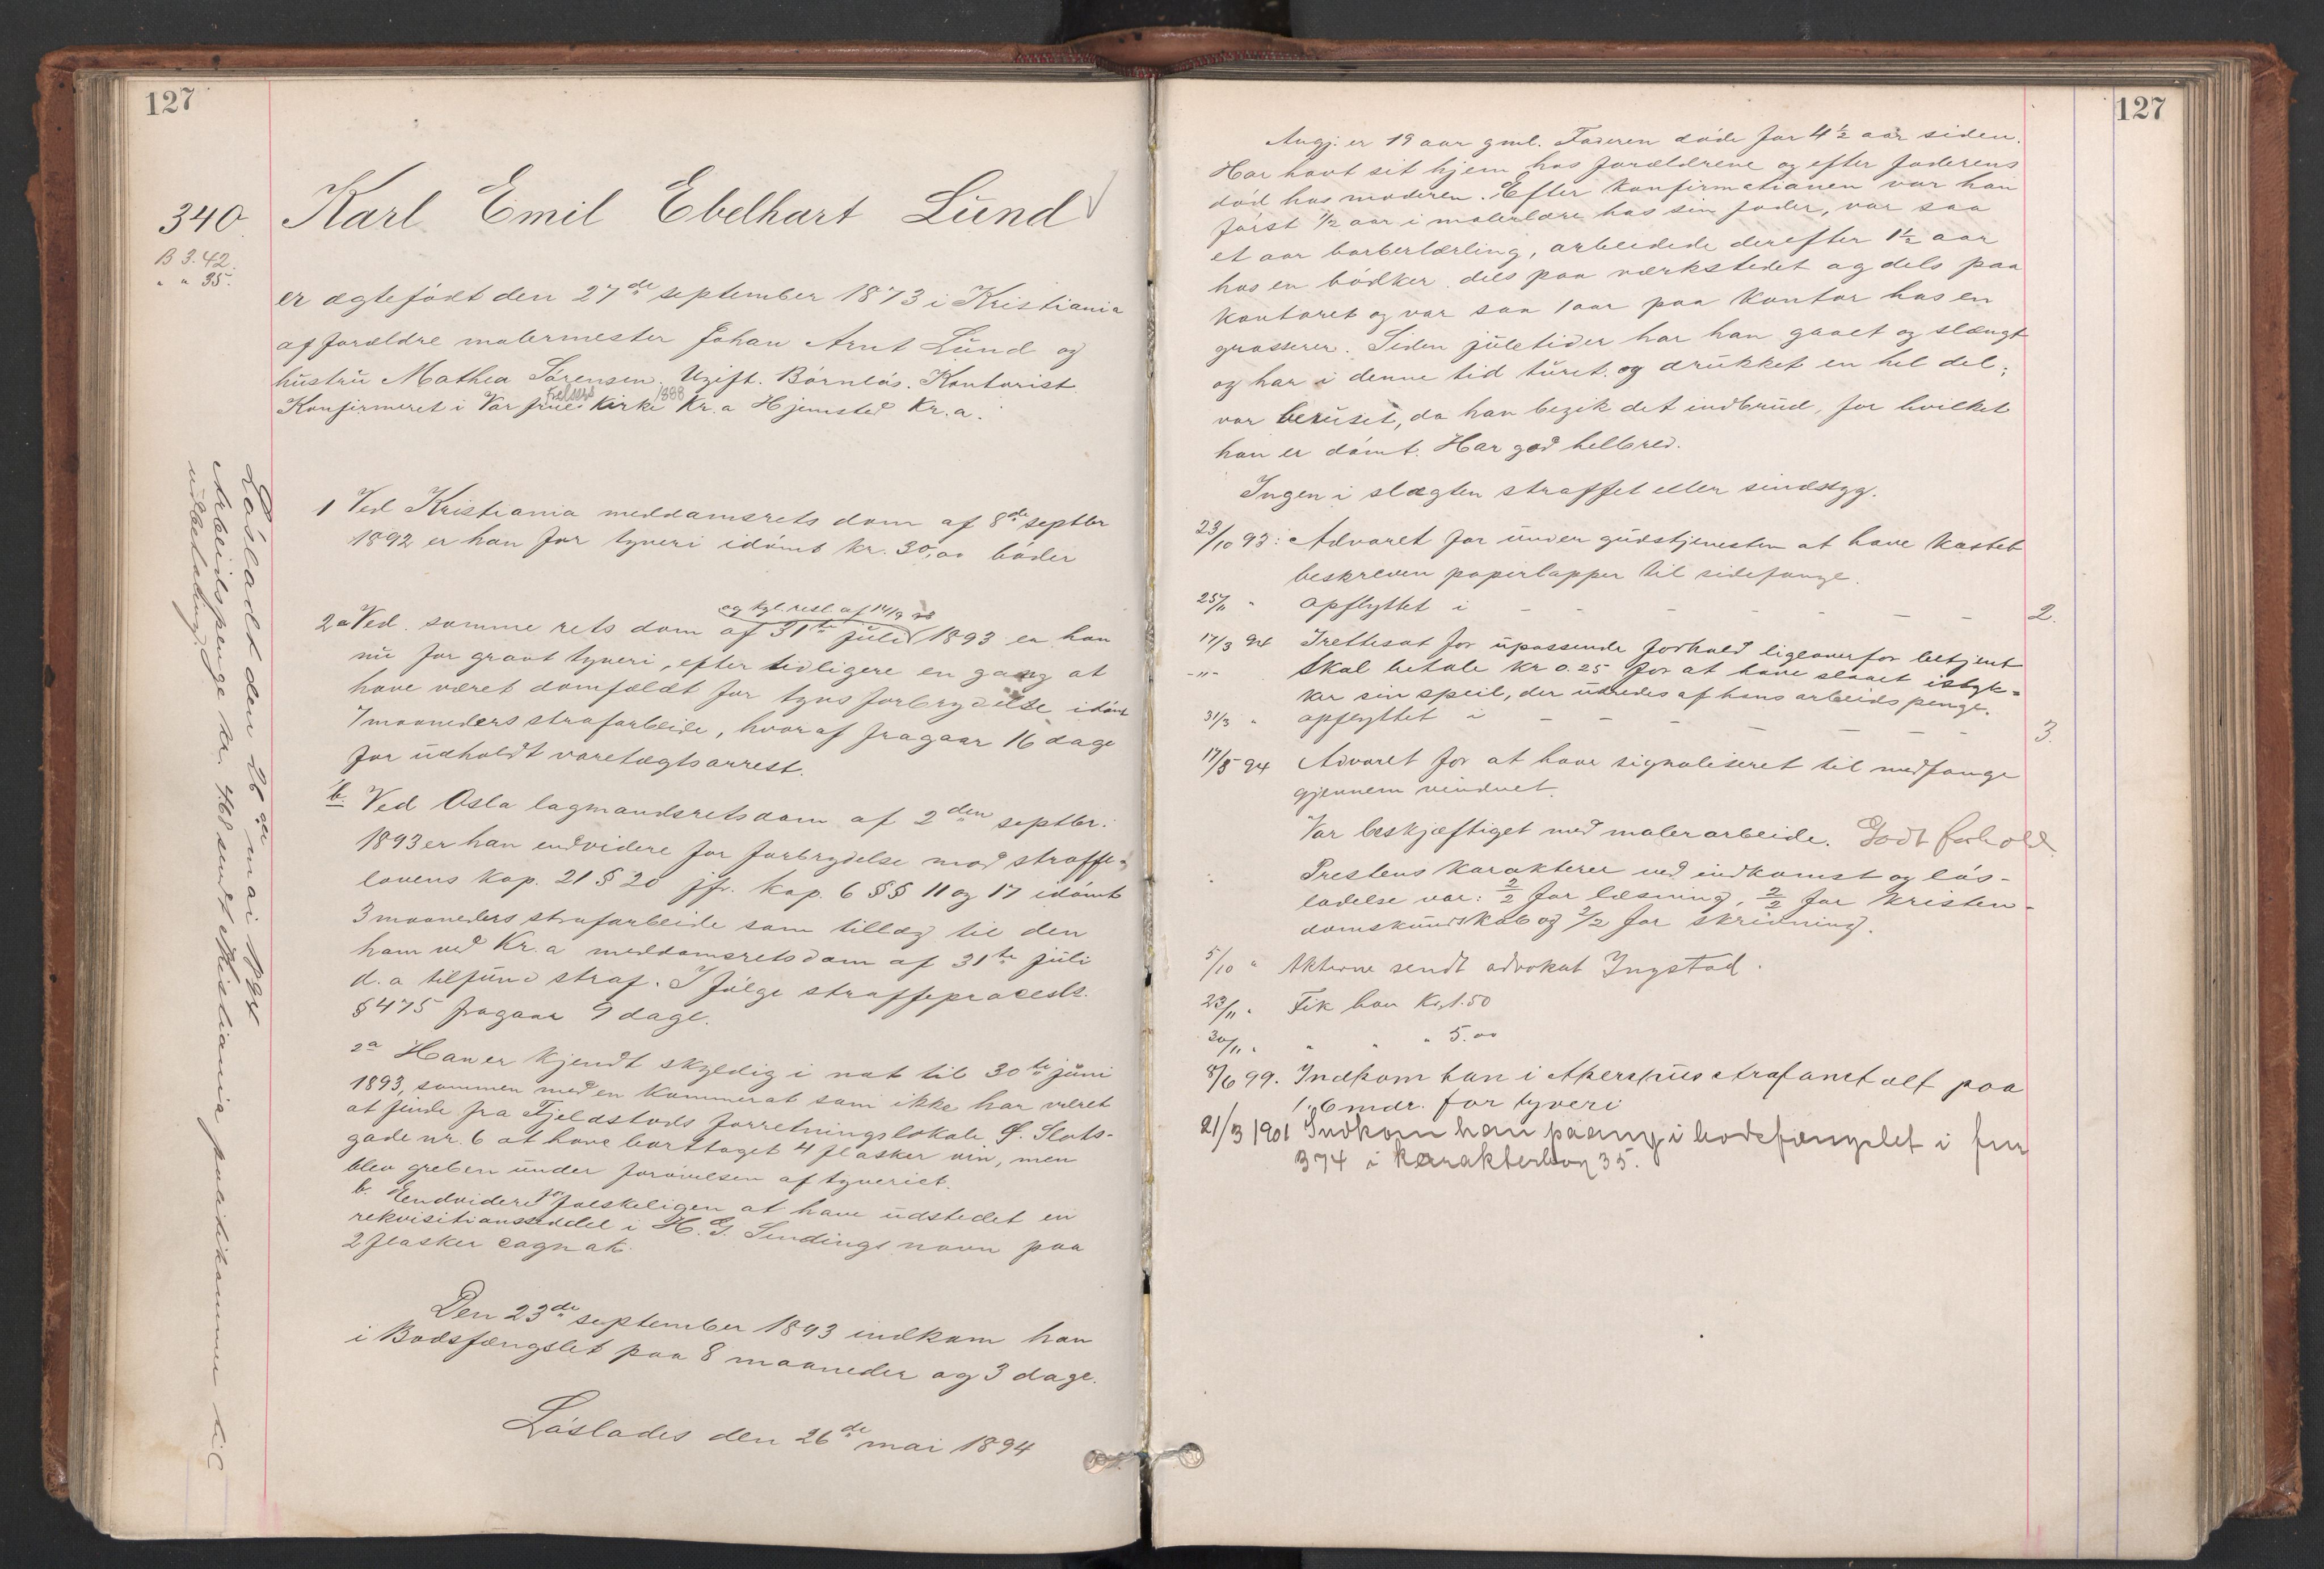 127
340
B 3.42.
" " 35.
Karl Emil Ebelhart Lund
er ægtefödt den 27de september 1873 i Kristiania
af forældre malermester Johan Arnt Lund og
hustru Mathea Sörensen. Ugift. Börnlös. Kontorist
Frelsers 1888
Konfirmeret i Vor frue Kirke Kr.a Hjemsted Kr.a.
1 Ved Kristiania meddomsrets dom af 8de septbr
1892 er han for tyveri idömt kr. 30,00 böder
og kgl. resl. af 14/9 93
2a Ved samme rets dom af 31te juli 1893 er han
nu for grovt tyveri, efter tidligere en gang at
have været domfældt for tyvsforbrydelse idömt
7 maaneders strafarbeide, hvoraf fragaar 16 dage
for udholdt varetægtsarrest.
b. Ved Oslo lagmandsrets dom af 2den septbr.
1893 er han endvidere for forbrydelse mod straffe-
lovens kap. 21 § 20 jfr. kap. 6 §§ 11 og 17 idömt
3 maaneders strafarbeide som tillæg til den
ham ved Kr.a meddomsrets dom af 31te juli
d.a tilfund straf. I fölge straffeprocessl.
§ 475 fragaar 9 dage.
2a Han er kjendt skyldig i nat til 30te juni
1893, sammen med en kammerat som ikke har været
at finde fra Fjeldstads forretningslokale Ö. Slots-
gade nr. 6 at have borttaget 4 flasker vin, men
blev greben under forövelsen af tyveriet.
b. Endvidere for falskeligen at have udstedet en
rekvisitionsseddel i H. G. Sendings navn paa
2 flasker cognak.
Den 23de september 1893 indkom han
i Bodsfængslet paa 8 maaneder og 3 dage.
Löslades den 26de mai 1894
Lösladt den 26de mai 1894
Arbeidspenge kr. 4.68 sendt Kristiania politikammer til
udbetaling.
127
Angj. er 19 aar gml. Faderen döde for 4½ aar siden.
Har havt sit hjem hos forældrene og efter faderens
död hos moderen. Efter konfirmationen var han
först ½ aar i malerlære hos sin fader, var saa
et aar barberlærling, arbeidede derefter 1½ aar
hos en bödker dels paa værkstedet og dels paa
kontoret og var saa 1 aar paa kontor hos en
grosserer. Siden juletider har han gaaet og slængt
og har i denne tid turet og drukket en hel del;
var beruset, da han begik det indbrud, for hvilket
han er dömt. Har god helbred.
Ingen i slægten straffet eller sindssyg.
23/10 93: Advaret for under gudstjenesten at have kastet
beskreven papirlapper til sidefange.
25/11 " Opflyttet i – – – – – – – 2.
17/3 94 Irettesat for upassende forhold ligeoverfor betjent
-"- Skal betale kr 0.25 for at have slaaet istyk-
ker sin speil, der udredes af hans arbeidspenge.
31/3 " opflyttet i – – – – – – 3.
17/5 94 Advaret for at have signaliseret til medfange
gjennem vinduet.
Var beskjæftiget med malerarbeide. Godt forhold.
Prestens karakterer ved indkomst og lös-
ladelse var: 2/2 for læsning, 2/2 for kristen-
domskundskab og 2/2 for skrivning.
5/10 " Akterne sendt advokat Ingstad.
23/11 " Fik han Kr. 1.50
30/11 " " " " 5.00
8/6 99. Indkom han i Akershus strafanstalt paa
1. 6 mdr. for tyveri
21/3 1901 Indkom han paany i bodsfængslet i fnr
374 i karakterbog 35.